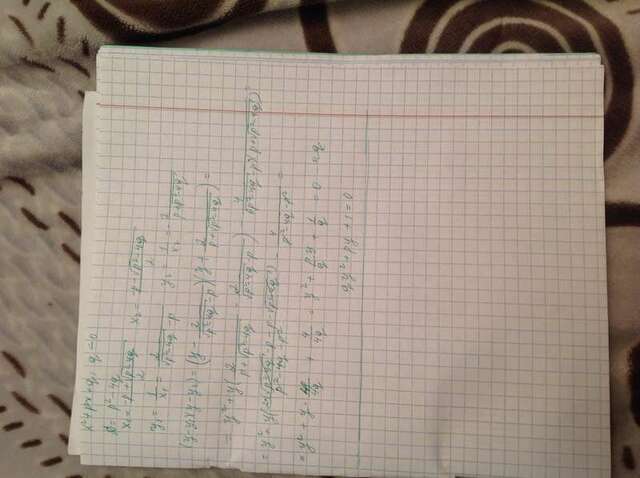 x²+px+q, q=0
D= p²-4q
x₁= (-p+√(p²-4q))/2   x₂= (-p-√(p²-4q))/2
y₁= 1/x₁ = 2/(√(p²-4q)-p)   y₂= 1/x₂ = -2/(p+√(p²-4q))
(y-y₁)(y-y₂)=(y- 2/(√(p²-4q)-p))(y+ 2/(p+√(p²-4q)))=
= y²+y(2/(p+√(p²-4q)) - 2/(√(p²-4q)-p)) - 4/((√(p²-4q)-p)(p+√(p²-4q)))
= y²+ y 4/(p²-4q-p²) =
= y²+y· 4p/4q + 4/4q = y²+ py/q + 1/q =0 ·q
qy²+py+1=0